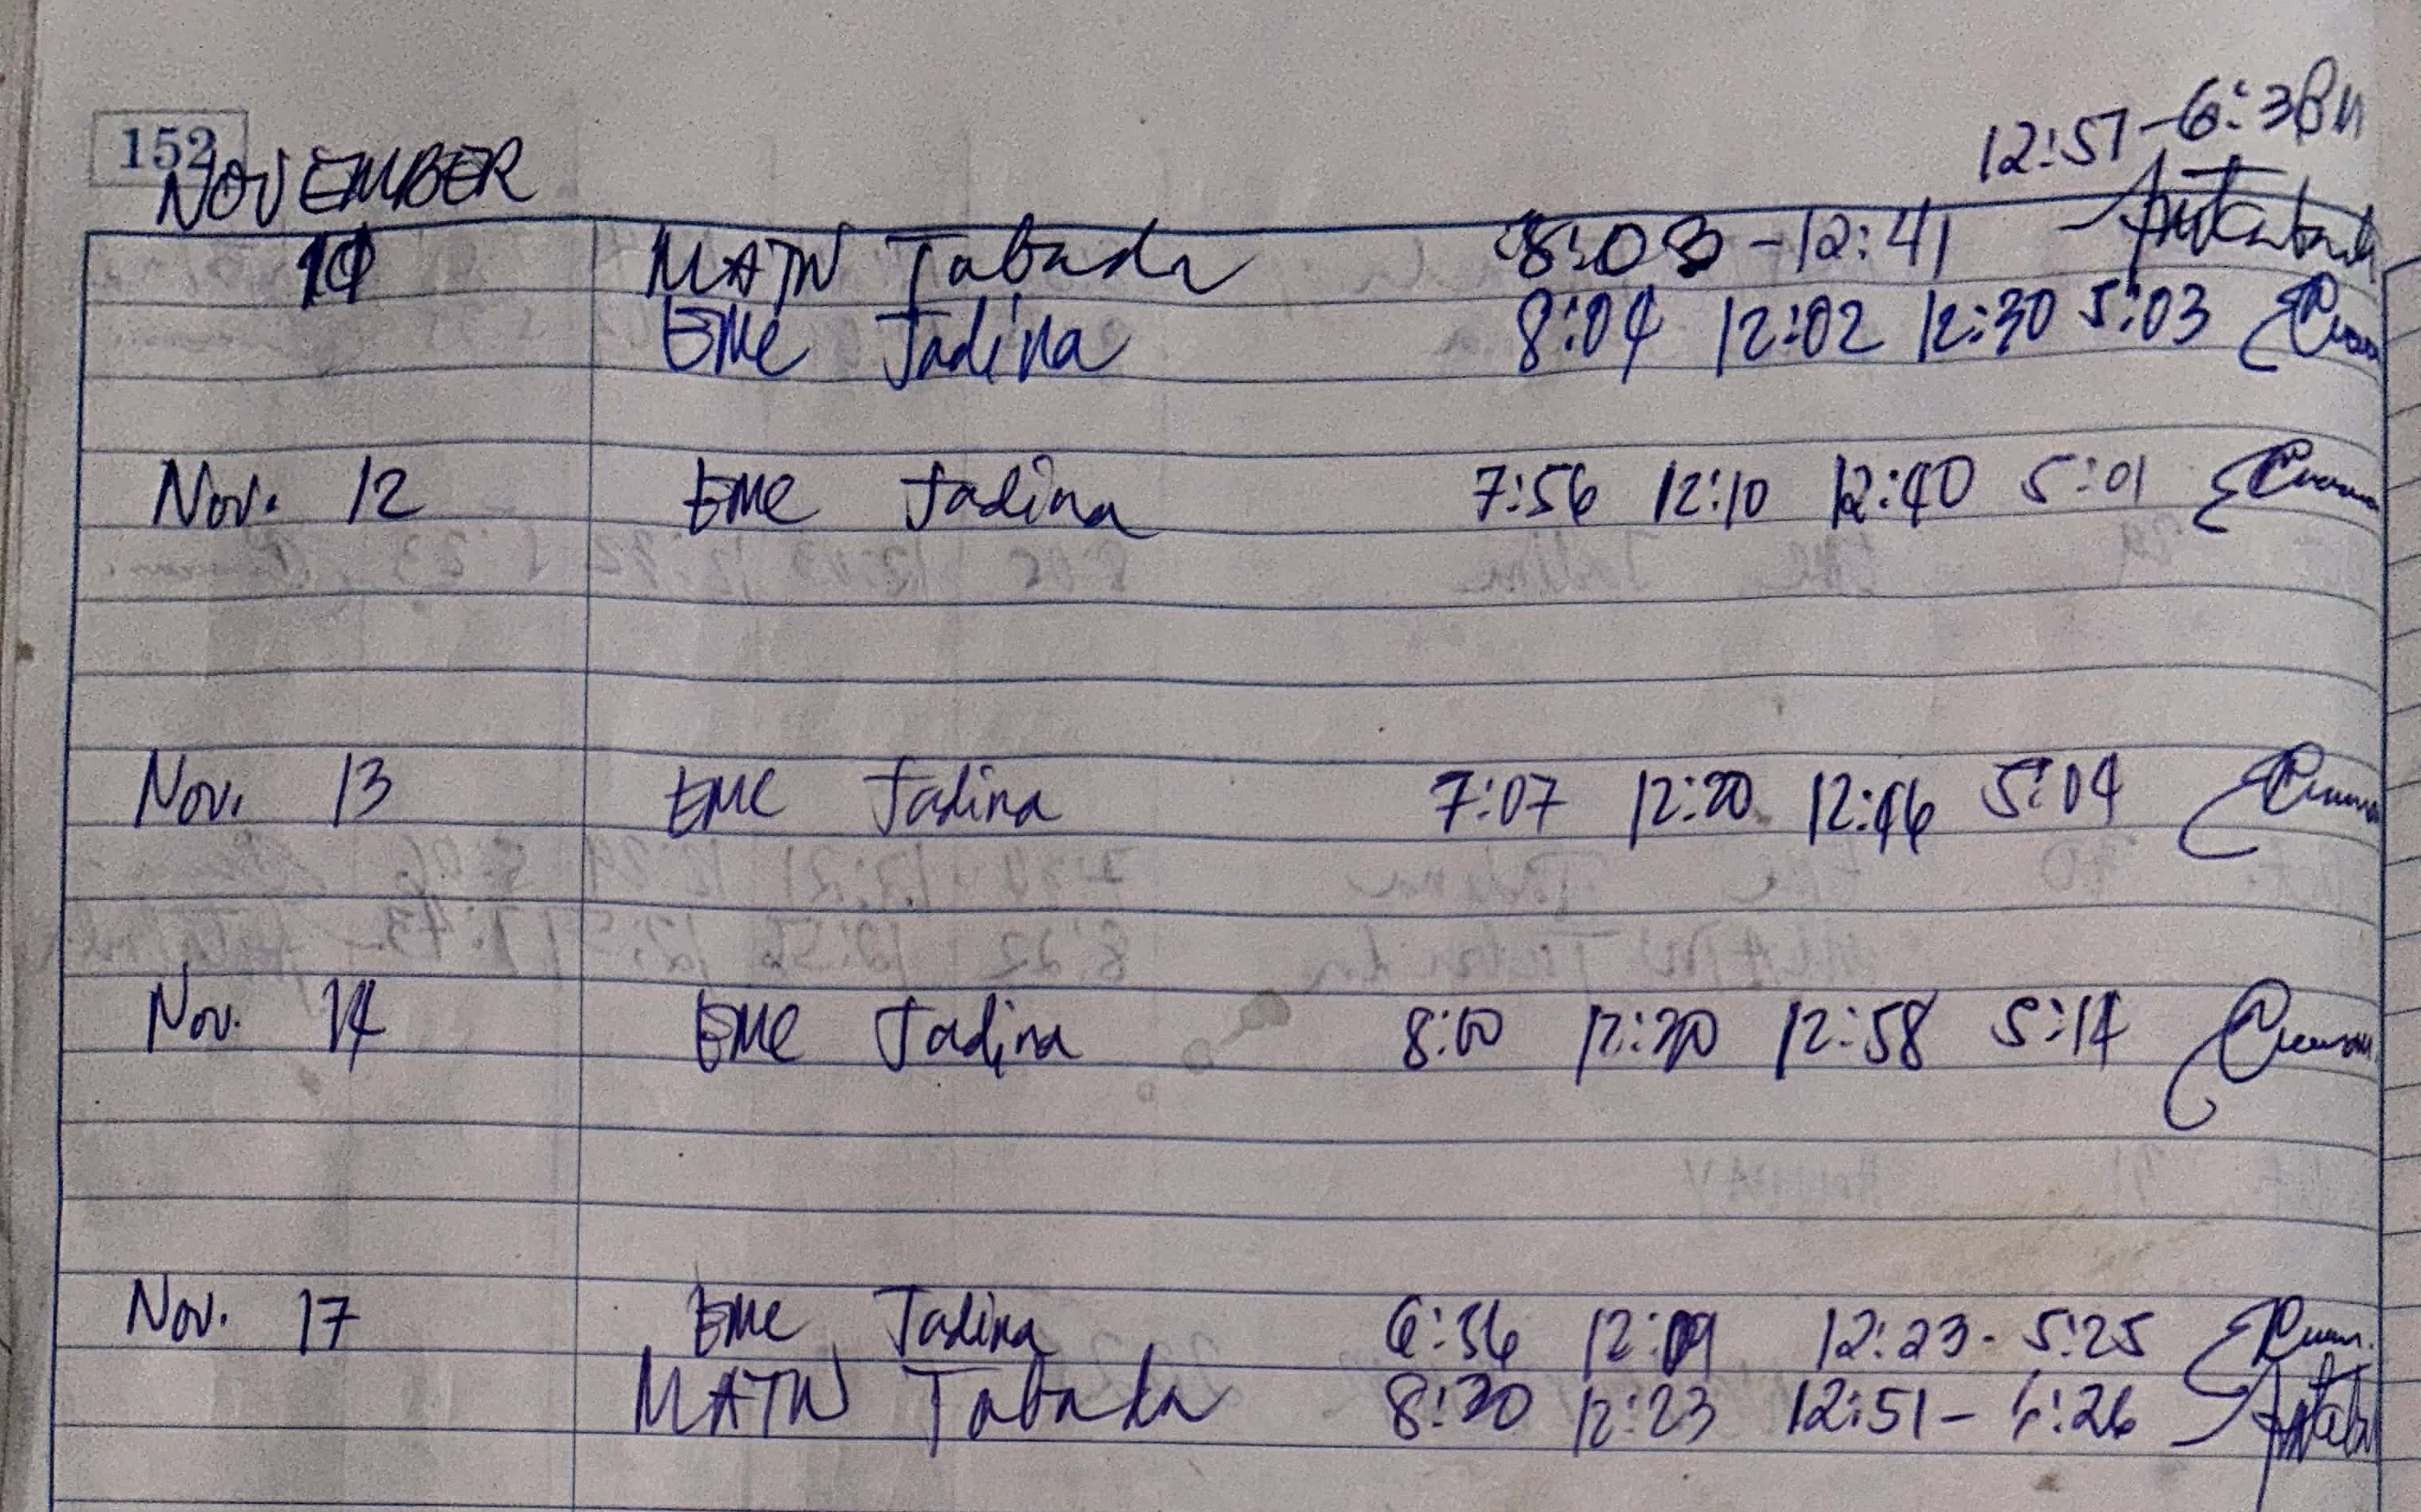 152
NOVEMBER
12:51-6:38
MATW Tabada 8:03 -12:41
EMC Tadina 8:04 12:02 12:30 5:03
Nov. 12 EMC Tadina 7:56 12:10 12:40 5:01
Nov. 13 EMC Tadina 7:07 12:20 12:46 5:04
Nov. 14 EMC Tadina 8:00 12:20 12:58 5:14
Nov. 17 EMC Tadina 6:56 12:09 12:23- 5:25
MATW Tabada 8:20 12:23 12:51-